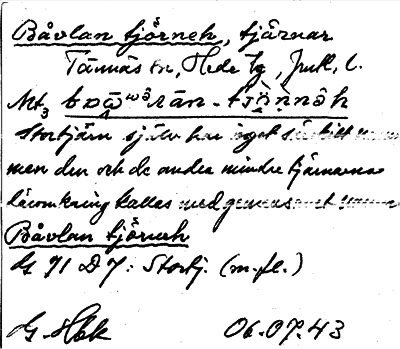 Båvlan tjörneh, tjärnar
Tännäs sn, Hede tg, Jmtl. l.
Mt3
Stortjärn själv har inget särskilt namn
men den och de andra mindre tjärnarna
däromkring kallas med gemensamt namn
Båvlan tjörneh
G 71 D 7: Stortj. (m.fl.)
G. Hbk 06.07.43